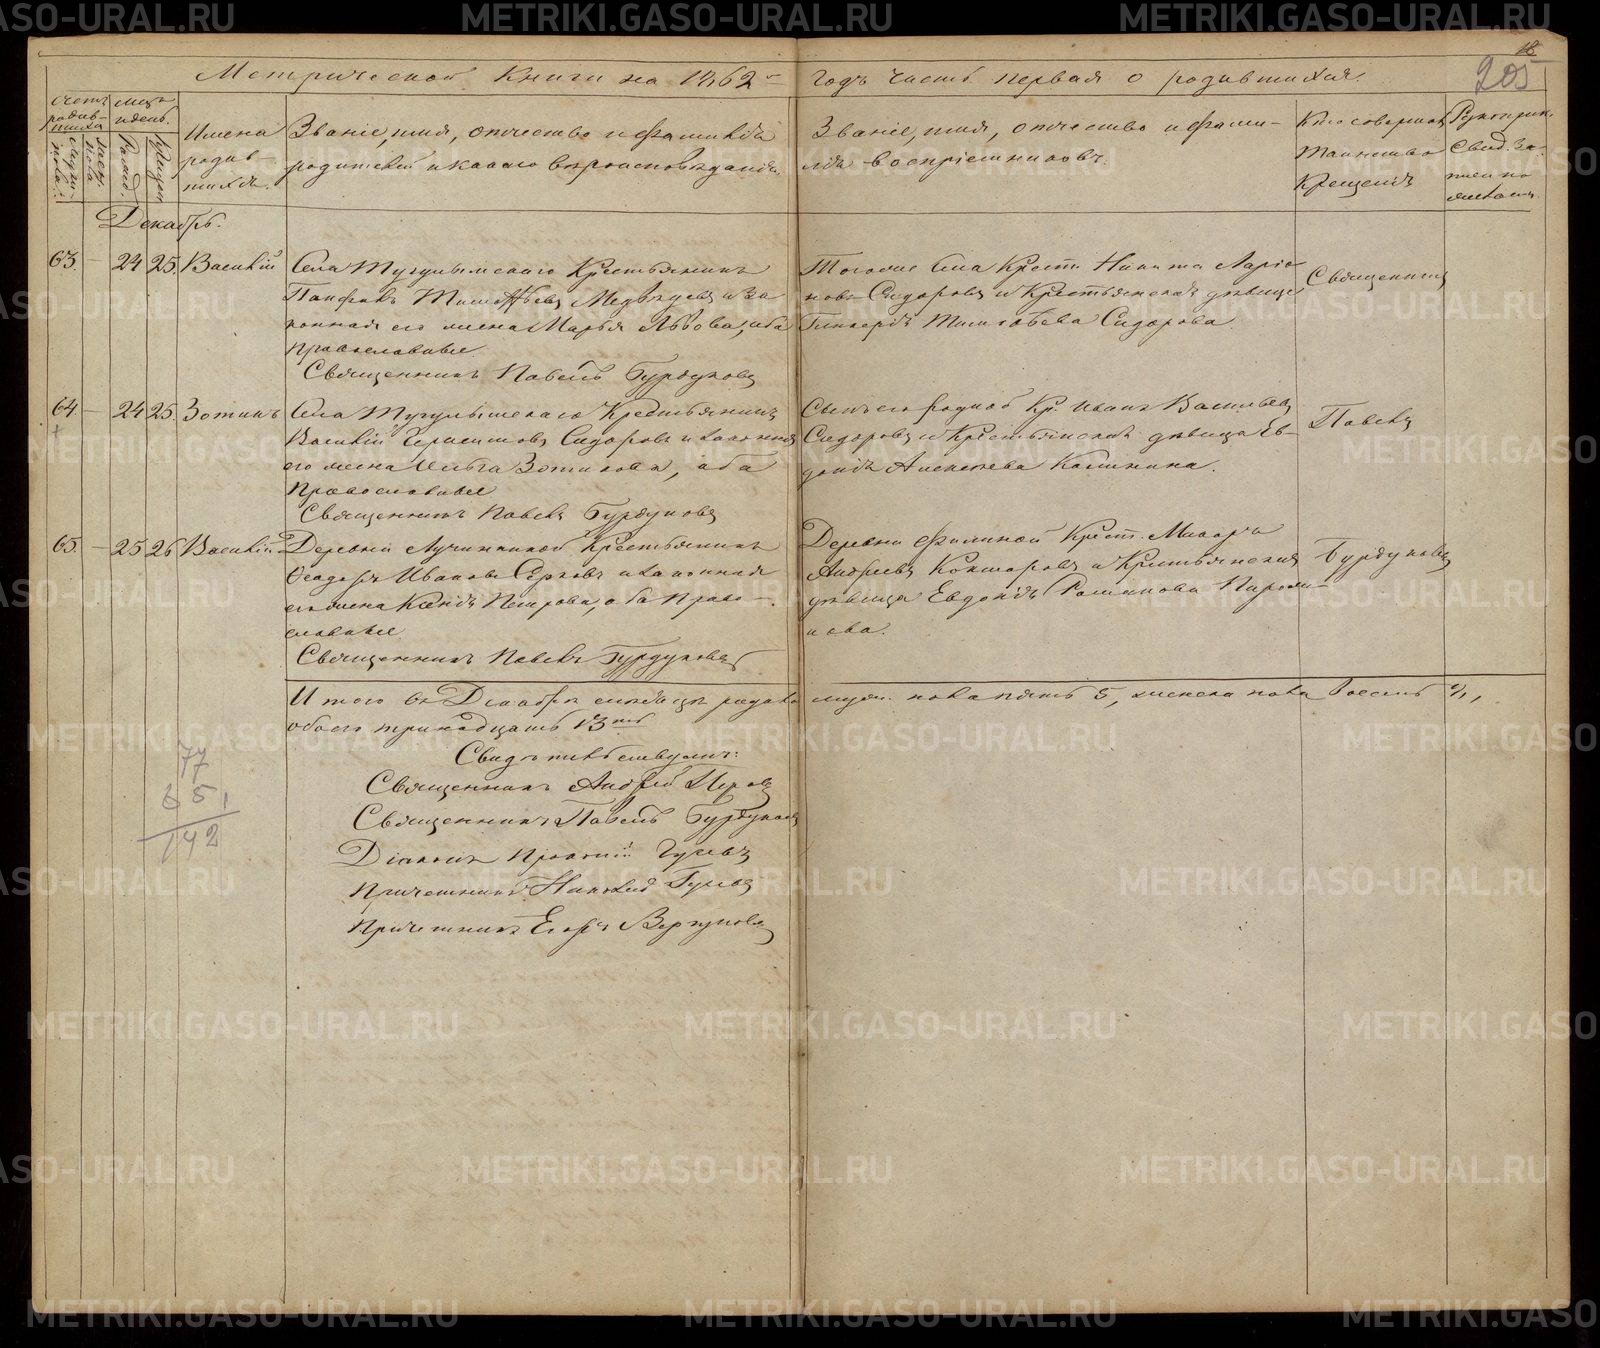 18
205
Метрической Книги на 1862й годъ часть первая о родившихся.
Счетъ родив-
шихся
мужск. пола
женск. пола
Мѣсц.
и день.
Рожд.
Крещен.
Имена
родив-
шихся.
Званіе, имя, отчество и фамилія
родителей и какого вѣроисповѣданія.
Званіе, имя, отчество и фами-
лія воспріемниковъ.
Кто совершалъ
таинство
крещенія
Рукоприк.
свид. за-
писи по
желанію
Декабрь.
63. — 24 25. Василій
Села Тугулымскаго Крестьянинъ
Панфилъ Тимофѣевъ Медвѣдевъ и за
конная его жена Марья Львова, оба
православные.
Священникъ Павелъ Бурдуковъ
Тогоже села Крест. Никита Ларіо
новъ Сидоровъ и Крестьянская дѣвица
Гликерія Тимофѣева Сидорова.
Священникъ
64 — 24 25. Зотикъ
Села Тугулымскаго Крестьянинъ
Василій Герасимовъ Сидоровъ и законная
его жена Ольга Зотикова, оба
Православные
Священникъ Павелъ Бурдуковъ
Сынъ его родной Кр. Иванъ Васильевъ
Сидоровъ и Крестьянская дѣвица Ев-
докія Алексѣева Калинина.
Павелъ
65. — 25 26 Василій
Деревни Лучинкиной Крестьянинъ
Ѳеодоръ Ивановъ Серковъ и законная
его жена Ксенія Петрова, оба Право-
славные
Священникъ Павелъ Бурдуковъ
Деревни Филиной Крест. Макаръ
Андреевъ Кокшаровъ и Крестьянская
дѣвица Евдокія
нова.
Бурдуковъ
Итого въ Декабрѣ мѣсяцѣ родилось муж. пола пять 5, женска пола восемь 8,
обоего тринадцать 13ть
Свидѣтельствуемъ:
Священникъ Андрей Перовъ
Священникъ Павелъ Бурдуковъ
Діаконъ Прокопій Гусевъ
Причетникъ Николай Гусевъ
Причетникъ Егоръ Веркуновъ
77
65
142
METRIKI.GASO-URAL.RU